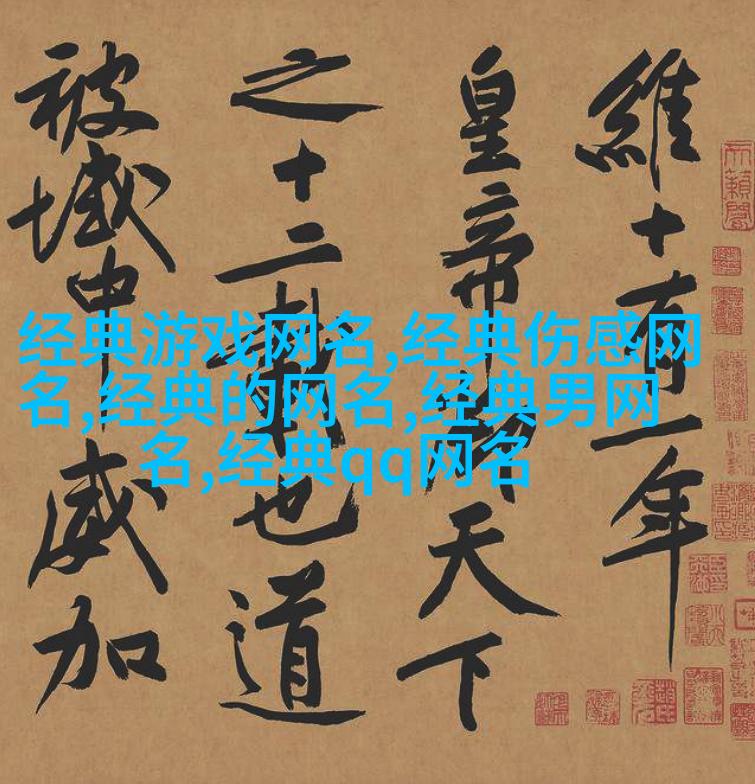 維十有一年
皇帝天下
之十二載也道
被域中威加
经典游戏网名,经典伤感网
名,经典的网名,经典男网
名,经典qq网名